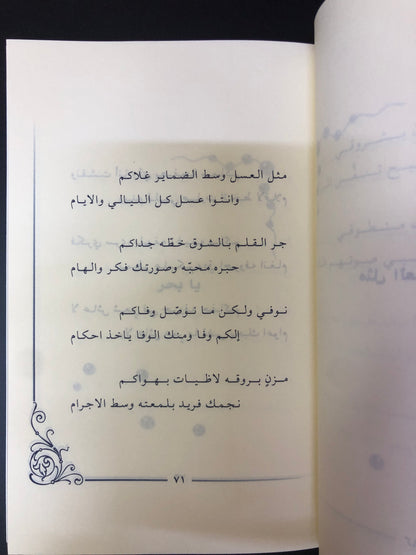 مثل العسل وسط الضماير غلاكم
وانتوا عسل كل الليالي والايام
جر القلم بالشوق خطّه جداكم
حبره محبّه وصورتك فكر والهام
نوفي ولكن ما نوصّل وفاكم
إلكم وفا ومنك الوفا ياخذ احكام
مزنٍ بروقه لاظيات بهواكم
نجمك فريد بلمعته وسط الاجرام
٧١